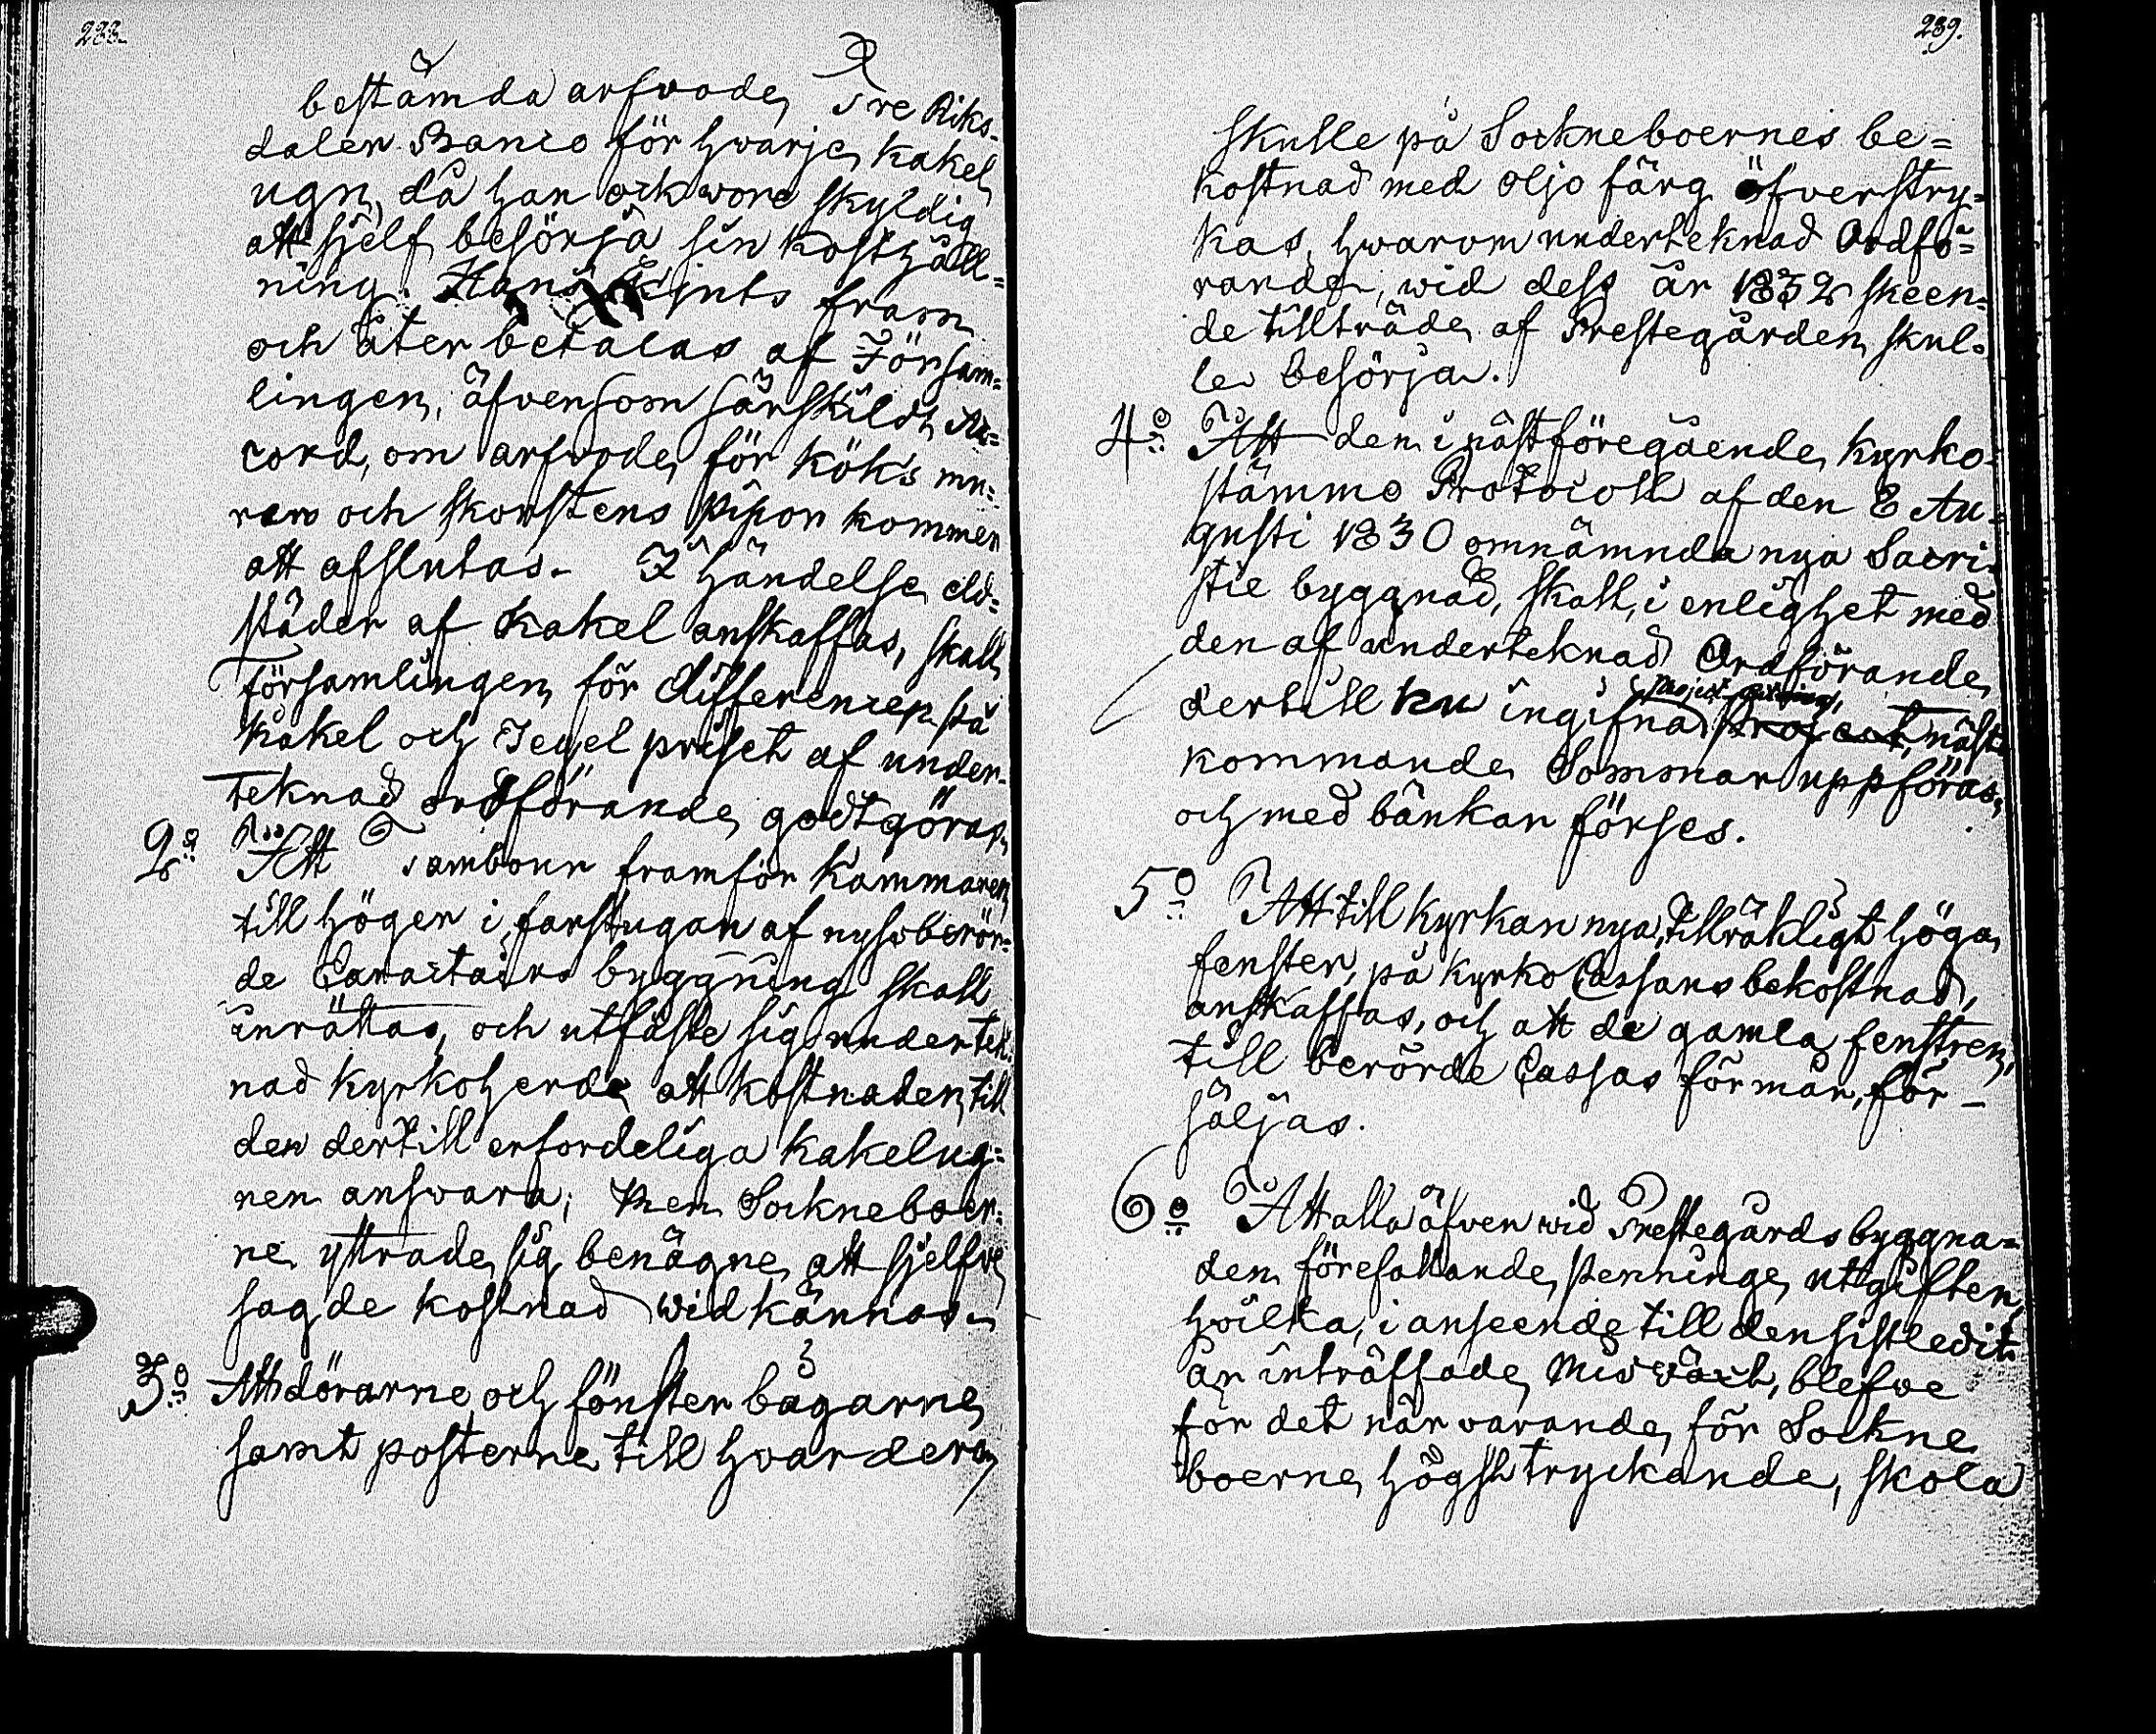 288.
bestämda arfvode, Tre Riks-
daler Banco för hwarje Kakel
ugn, då han ock wore skyldig
att sjelf besörja sin kosthåll=
ning. Hans skjuts fram
och åter betalas af Försam=
lingen, äfvensom särskildt Ac=
cord, om arfvode för köks mu=
rar och skorstens pipor kommer
att afslutas. I händelse eld=
städer af Kakel anskaffas, skall
församlingen för differencen på
Kakel och Tegel priset af under-
teknad ordförande godtgöras.
2:o Att Tambour framför Kammaren
till höger i farstugan af nyssberör=
de Caractairs byggning skall
inrättas, och utfäste sig undertek=
nad Kyrkoherde att kostnaden till
den dertill erforderliga kakelug=
nen answara; Men Sockneboer=
ne yttrade sig benägne att sjelfve
sagde kostnad widkännas.
3:o Att dörarne och fönster bågarne
samt posterne till hvardera
289.
skulle på Sockneboernes be=
kostnad med oljo färg öfverstry=
kas, hwarom underteknad Ordfö=
rande, wid dess år 1832 skeen=
de tillträde af Prestegården skul=
le besörja.
4:o Att den i nästföregående Kyrko-
stämmo Protocoll af den 8 Au=
gusti 1830 omnämnda nya Sacri=
stie byggnad, skall, i enlighet med
den af underteknad Ordförande
dertill nu ingifna Project näst
kommande Sommar uppföras,
och med bänkar förses.
5:o Att till Kyrkan nya, tillräkligt höga,
fenster, på Kyrko Cassans bekostnad,
anskaffas, och att de gamla fenstren,
till berörde Cassas förmån, för-
säljas.
6:o Att alla äfven wid Prestegårds byggna=
den förefallande penninge utgifter,
hvilka, i anseende till den sistledit
år inträffade Miswäxt, blefve
för det närvarande för Sockne
boerne högst tryckande, skola